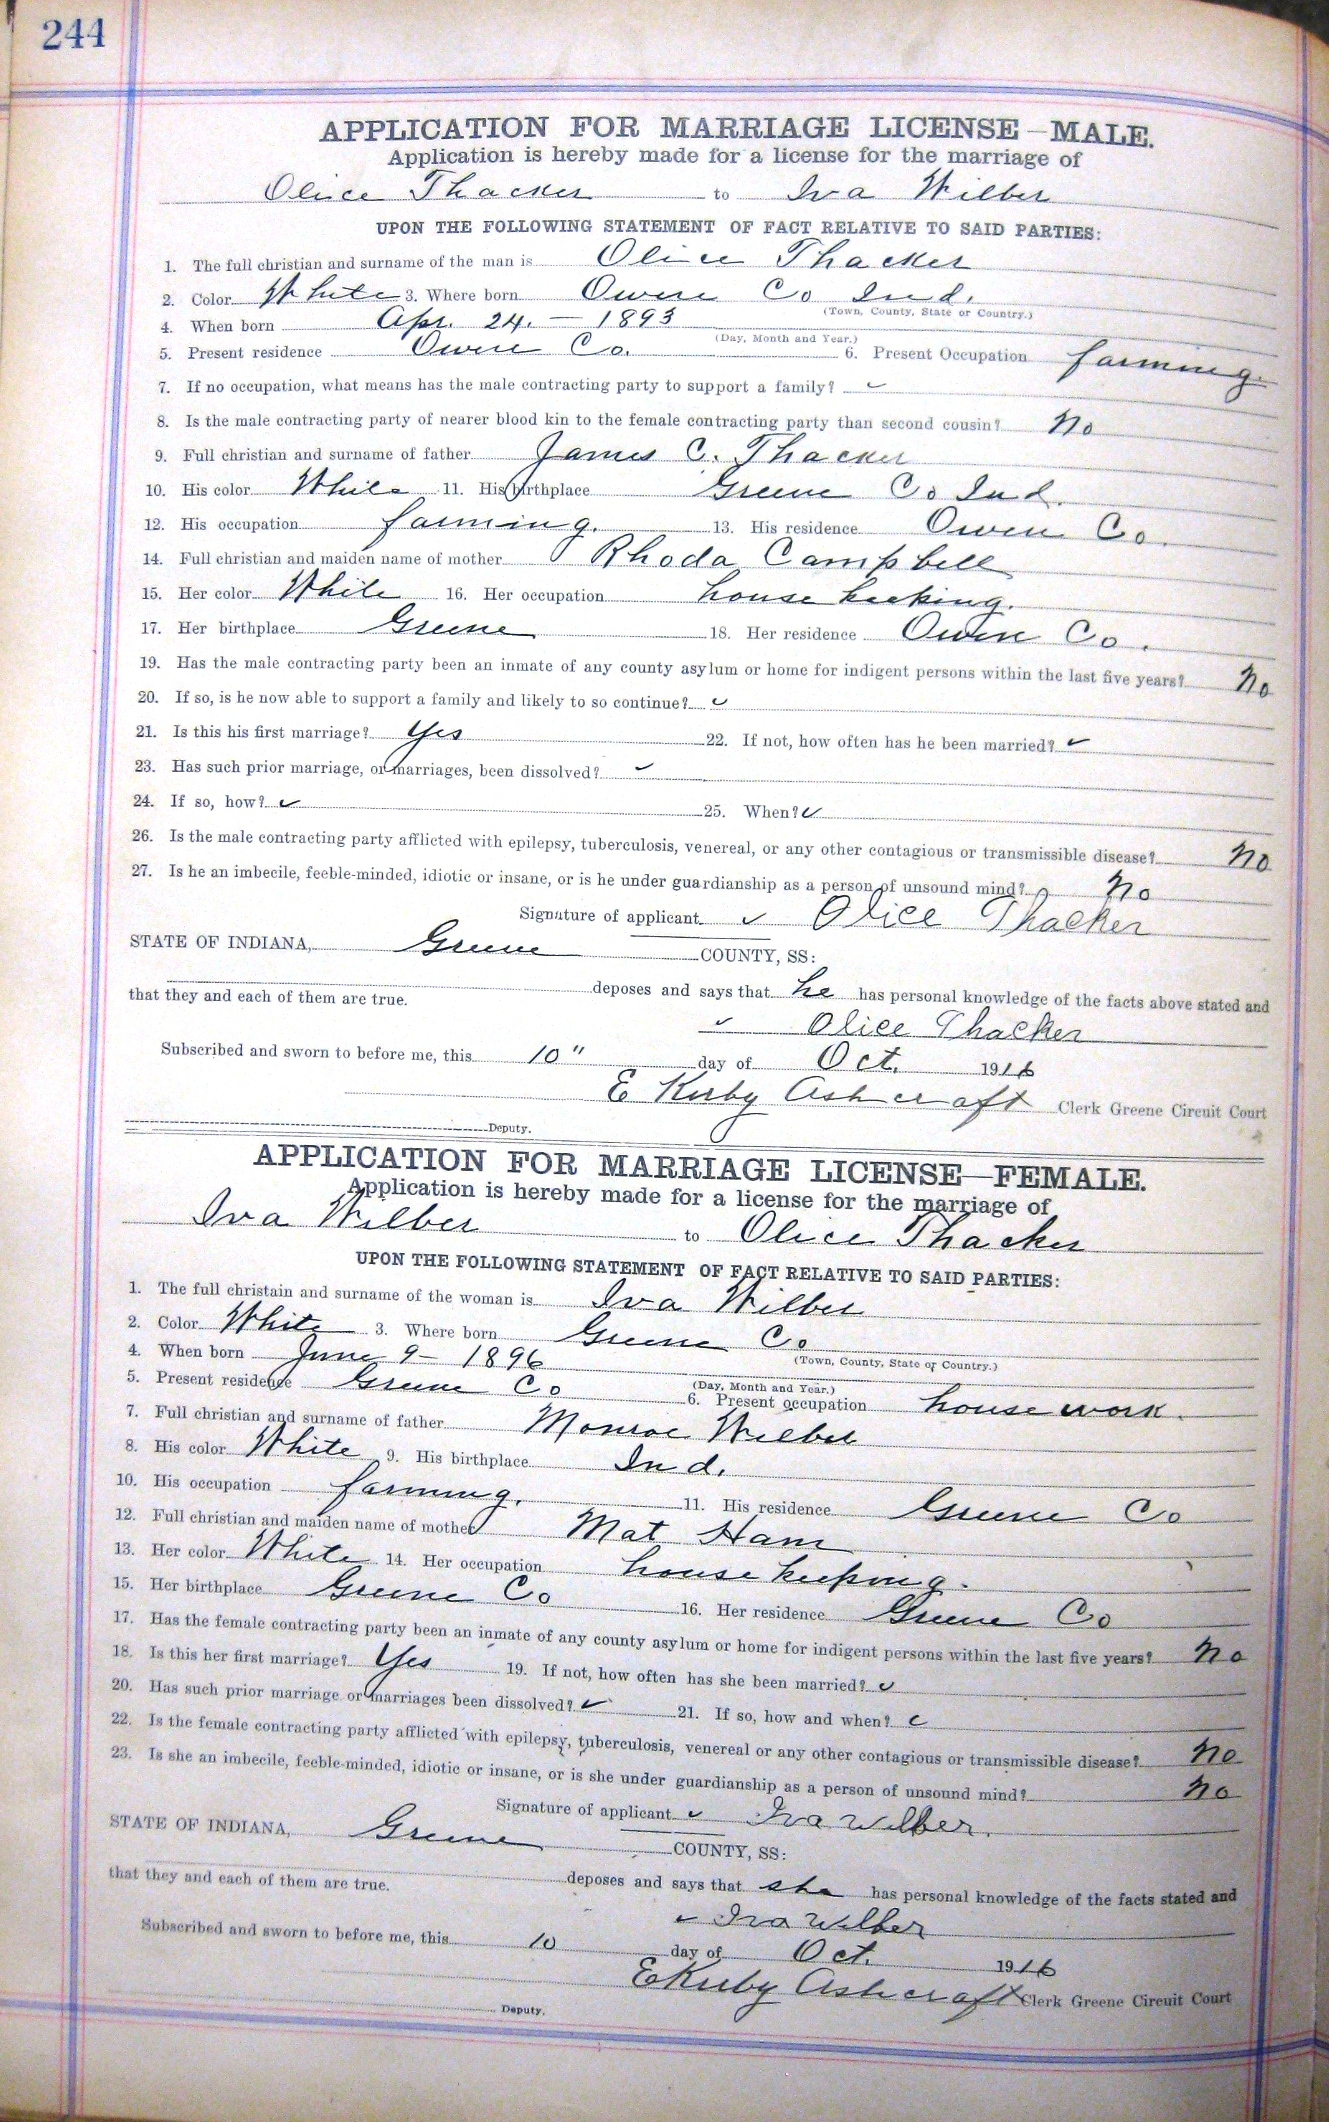 244
APPLICATION FOR MARRIAGE LICENSE—MALE.
Application is hereby made for a license for the marriage of
Olice Thacker to Iva Wilber
UPON THE FOLLOWING STATEMENT OF FACT RELATIVE TO SAID PARTIES:
1. The full christian and surname of the man is Olice Thacker
2. Color White 3. Where born Owen Co Ind.
(Town, County, State or Country.)
4. When born Apr. 24. — 1893
(Day, Month and Year.)
5. Present residence Owen Co. 6. Present Occupation farming.
7. If no occupation, what means has the male contracting party to support a family? ✓
8. Is the male contracting party of nearer blood kin to the female contracting party than second cousin? No
9. Full christian and surname of father James C. Thacker
10. His color White 11. His birthplace Greene Co Ind.
12. His occupation farming. 13. His residence Owen Co.
14. Full christian and maiden name of mother Rhoda Campbell
15. Her color White 16. Her occupation house keeking.
17. Her birthplace Greene 18. Her residence Owen Co.
19. Has the male contracting party been an inmate of any county asylum or home for indigent persons within the last five years? No
20. If so, is he now able to support a family and likely to so continue? ✓
21. Is this his first marriage? Yes 22. If not, how often has he been married? ✓
23. Has such prior marriage, or marriages, been dissolved? ✓
24. If so, how? ✓ 25. When? ✓
26. Is the male contracting party afflicted with epilepsy, tuberculosis, venereal, or any other contagious or transmissible disease? No
27. Is he an imbecile, feeble-minded, idiotic or insane, or is he under guardianship as a person of unsound mind? No
Signature of applicant ✓ Olice Thacker
STATE OF INDIANA, Greene COUNTY, SS:
deposes and says that he has personal knowledge of the facts above stated and
that they and each of them are true.
✓ Olice Thacker
Subscribed and sworn to before me, this 10" day of Oct. 1916
E Kirby Ashcraft Clerk Greene Circuit Court
Deputy.
APPLICATION FOR MARRIAGE LICENSE—FEMALE.
Application is hereby made for a license for the marriage of
Iva Wilber to Olice Thacker
UPON THE FOLLOWING STATEMENT OF FACT RELATIVE TO SAID PARTIES:
1. The full christain and surname of the woman is Iva Wilber
2. Color White 3. Where born Greene Co
(Town, County, State of Country.)
4. When born June 9 – 1896
(Day, Month and Year.)
5. Present residence Greene Co 6. Present occupation house work.
7. Full christian and surname of father Monroe Wilber
8. His color White 9. His birthplace Ind.
10. His occupation farming. 11. His residence Greene Co
12. Full christian and maiden name of mother Mat Ham
13. Her color White 14. Her occupation house keeping.
15. Her birthplace Greene Co 16. Her residence Greene Co
17. Has the female contracting party been an inmate of any county asylum or home for indigent persons within the last five years? No
18. Is this her first marriage? Yes 19. If not, how often has she been married? ✓
20. Has such prior marriage or marriages been dissolved? ✓ 21. If so, how and when? ✓
22. Is the female contracting party afflicted with epilepsy, tuberculosis, venereal or any other contagious or transmissible disease? No
23. Is she an imbecile, feeble-minded, idiotic or insane, or is she under guardianship as a person of unsound mind? No
Signature of applicant ✓ Iva Wilber.
STATE OF INDIANA, Greene COUNTY, SS:
deposes and says that she has personal knowledge of the facts stated and
that they and each of them are true.
✓ Iva Wilber
Subscribed and sworn to before me, this 10 day of Oct. 1916
E Kirby Ashcraft Clerk Greene Circuit Court
Deputy.